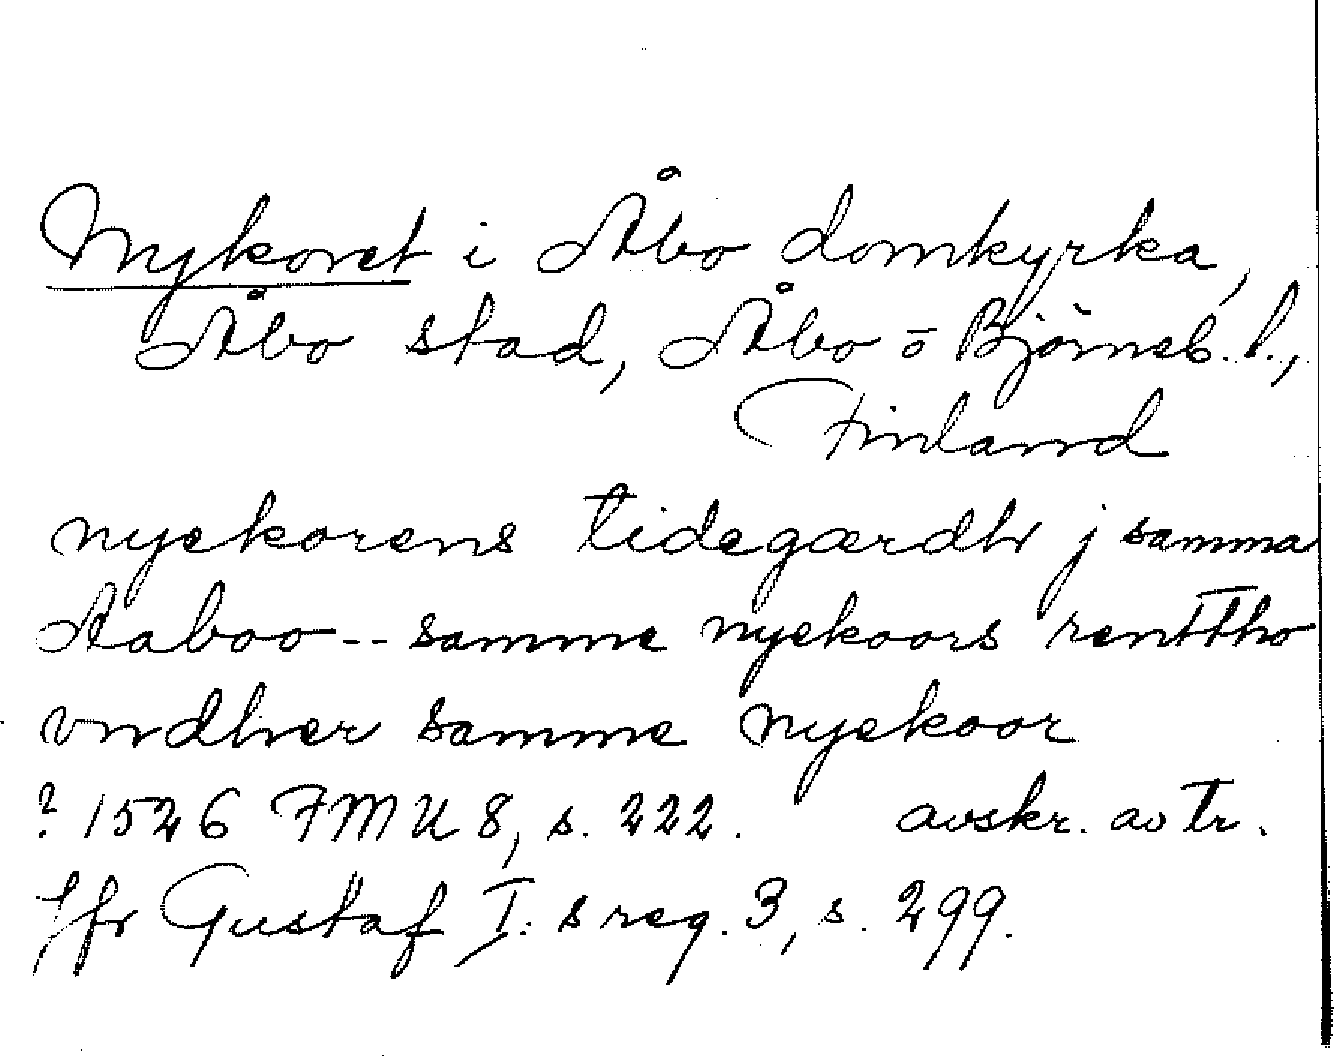 Nykoret i Åbo domkyrka,
Åbo stad, Åbo o Björneb. l.,
Finland
nyekorens tidegærdh j samma
Aaboo -- samme nyekoors renttho
vndher samme nyekoor
? 1526 FMU 8, s. 222. avskr. av tr.
Jfr Gustaf I:s reg. 3, s. 299.